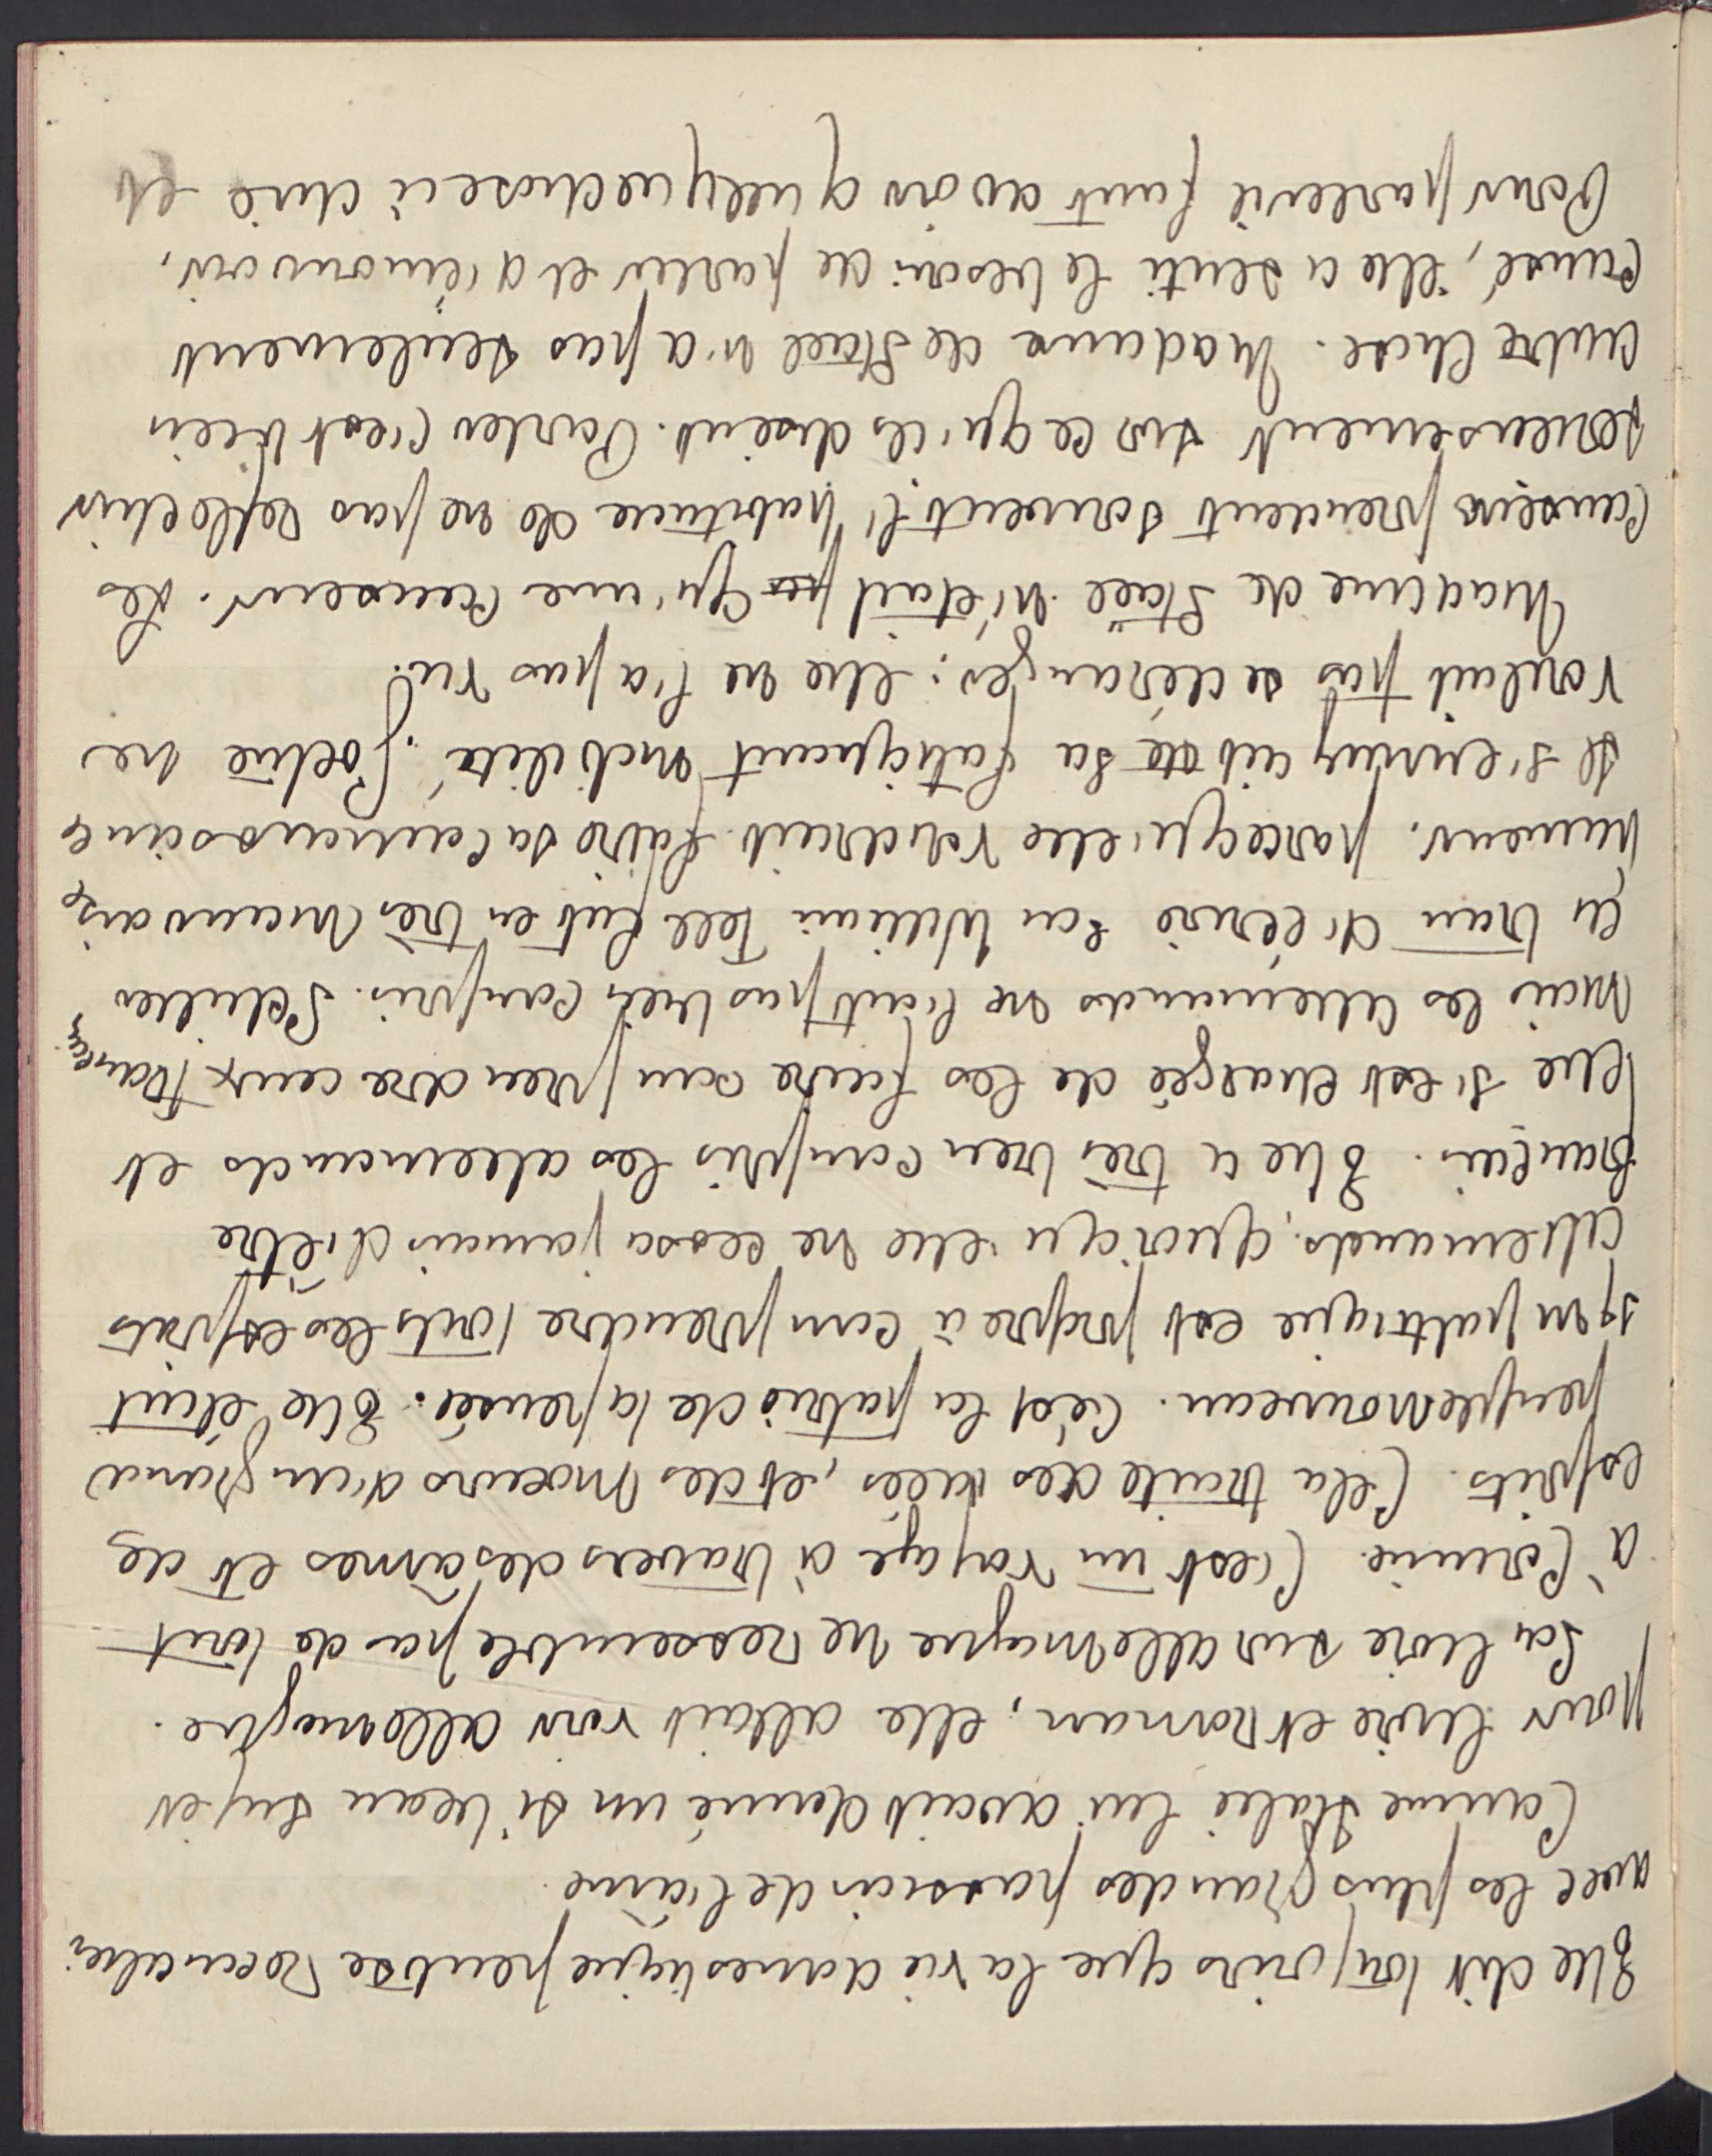 Elle dit toujours que la vie domestique peut se reconcilier
avec les plus grandes passion de l'âme.
Comme Italie lui avait donné un si beau sujet
pour livre et roman, elle allait voir allemagne.
La livre sur allemagne ne ressemble pas de tout
à Corinne. C'est un voyage à travers des âmes et de
esprits. Cela traite des idées, et des moeurs d'un grand
peuple nouveau. C'est la patrie de la pensée. Elle était
sympathique est propre à comprendre touts les esprits
Allemands, quoiqu'elle ne cessa jamais d'être
français. Elle a très bien compris les allemands et
elle s'est chargée de les faire comprendre aux francais
Mais les Allemands ne l'ont pas bien compris. Schiller
en train d'écrire son William Tell fut en très mauvais
humeur, parcequ'elle voudrait faire sa connaissance
Il s'ennuyait de sa fatiguant mobilité. Goethe ne
voulait pas se déranger: elle ne l'a pas vu.
Madame de Stael n'était pas qu'une causeur. Les
causeurs prendent souvent l'habitude de ne pas reflechir
serieusement sur ce qu'ils disent. Parler c'est bien
autre chose. Madame de Stael n'a pas seulement
causé, elle a senti le besoin de parler et d'émouvoir.
Pour parler il faut avoir quelquechose à dire et